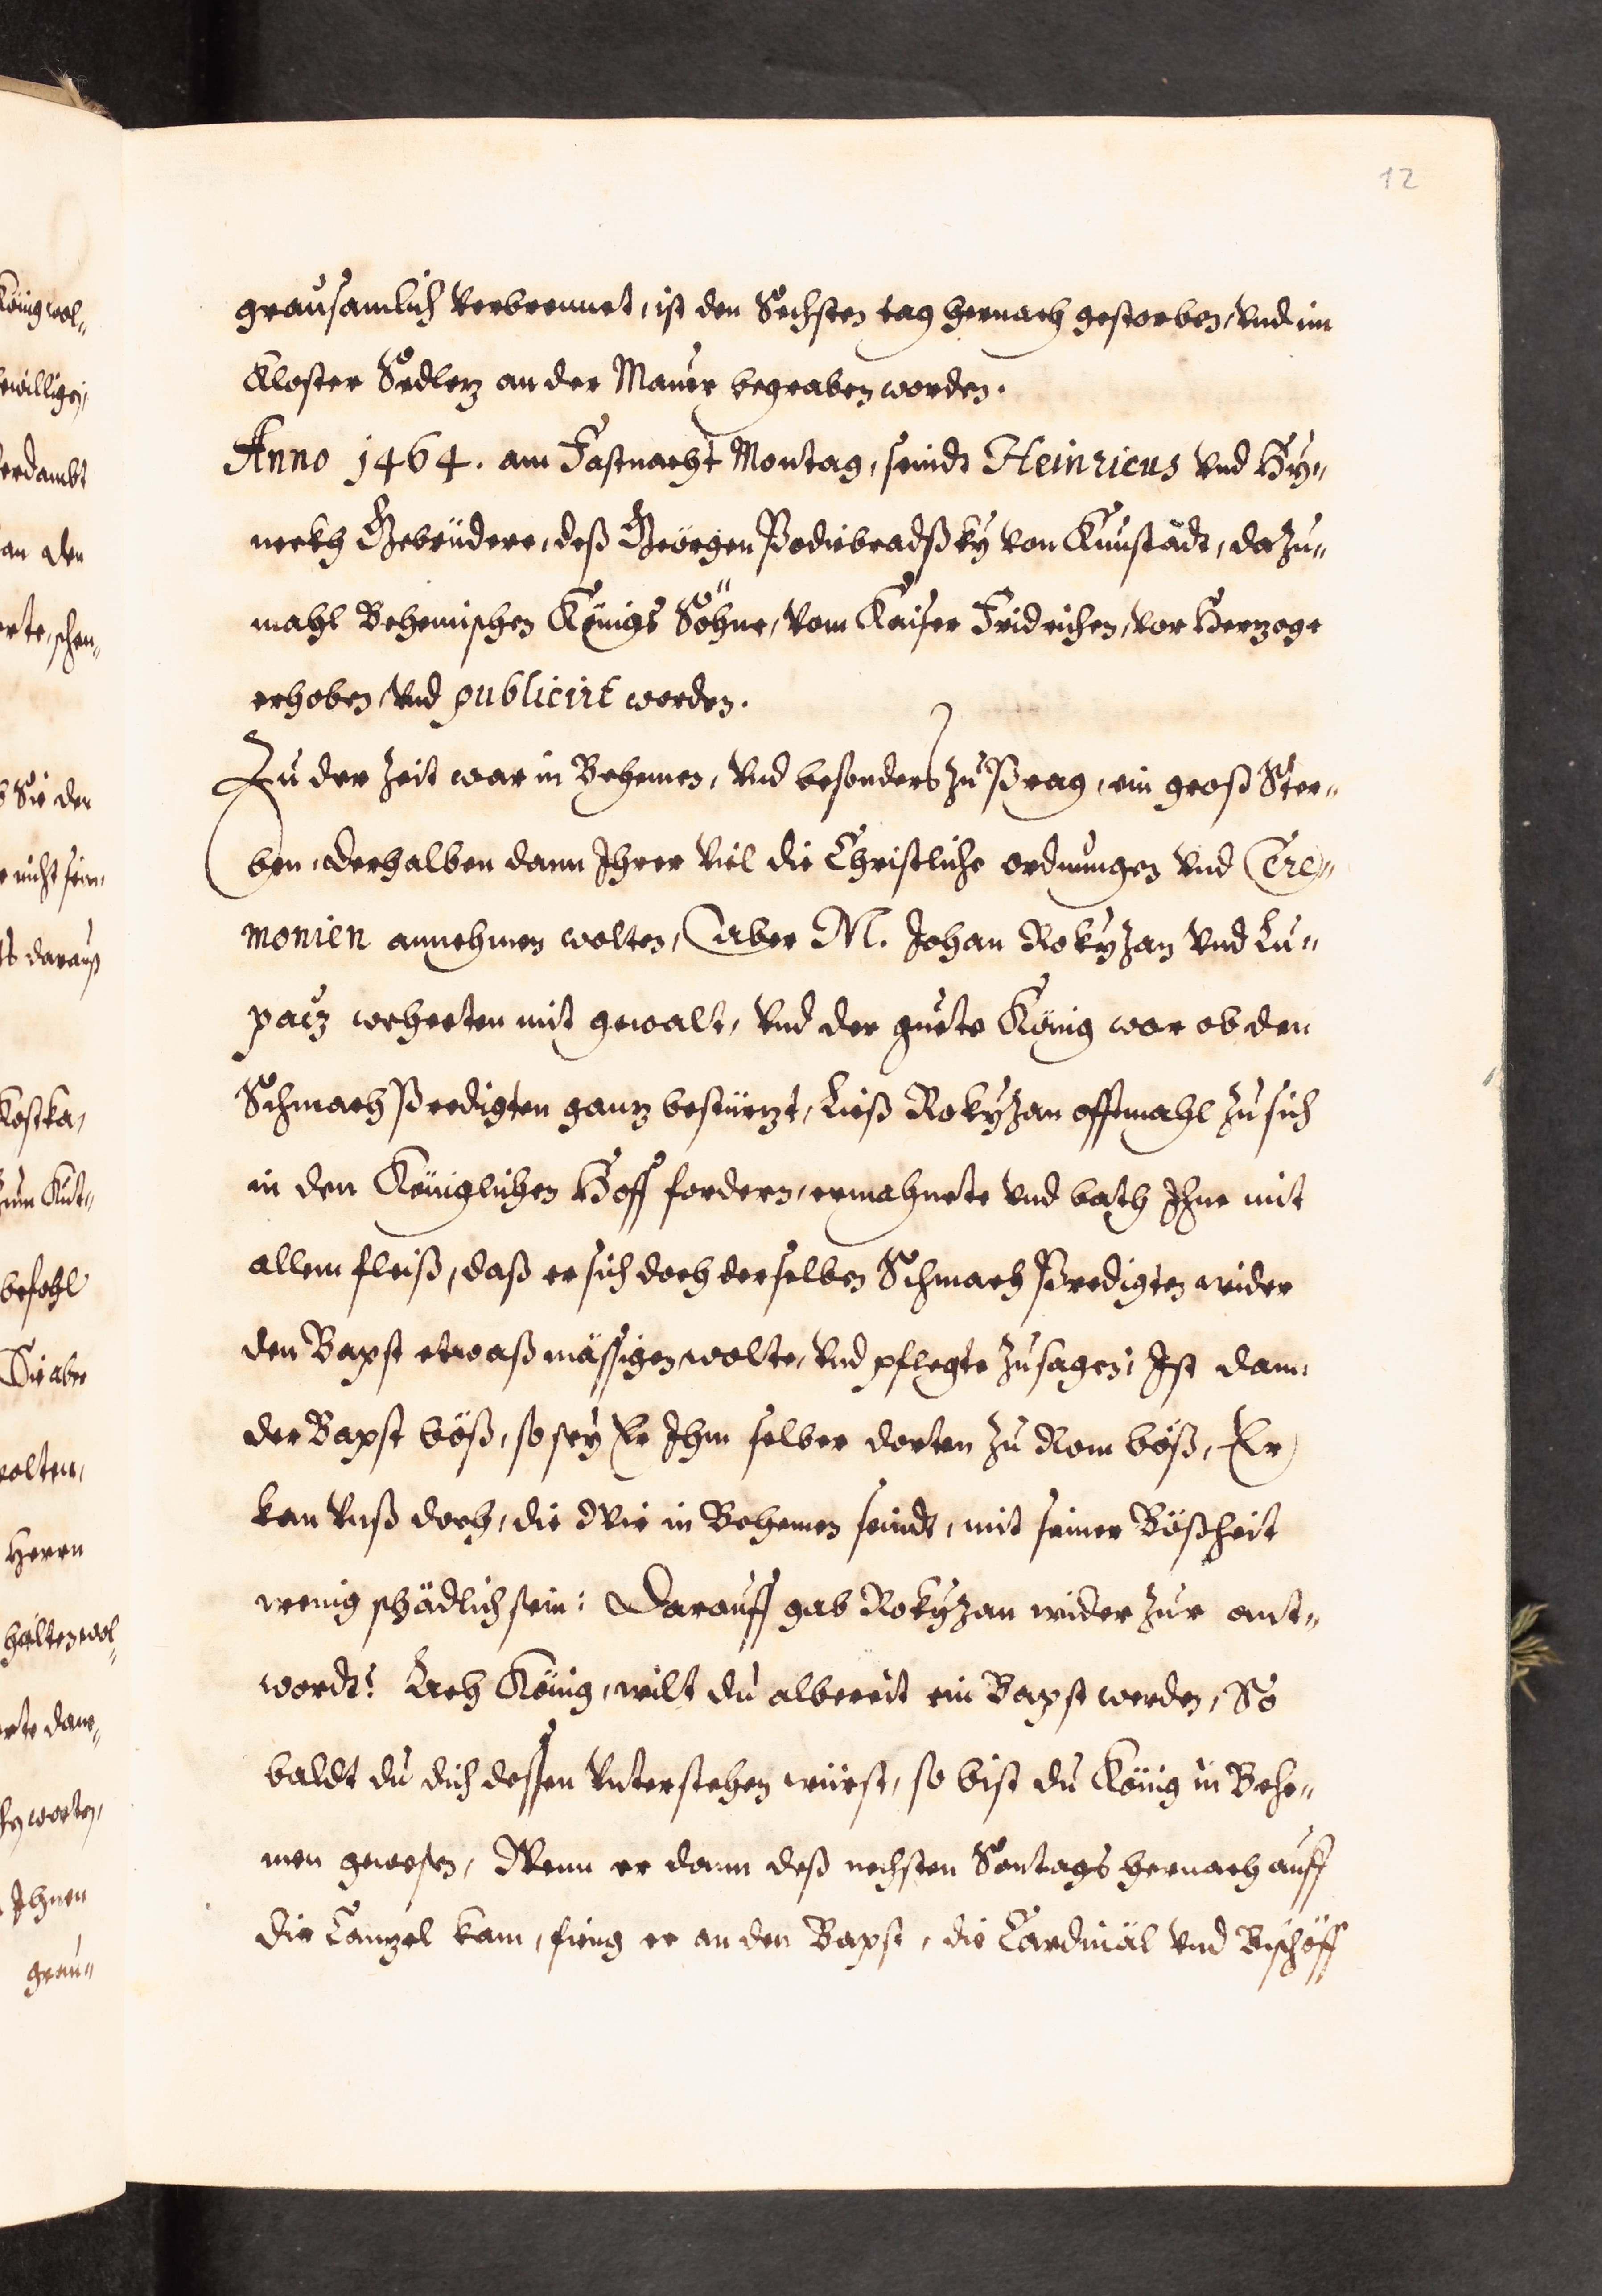 12
grausamlich verbrennet, ist den Sechsten tag hernach gestorben, vnd im
Kloster Sedletz an der Mauer begraben worden.
Anno 1464. am Fastnacht Montag, seindt Heinricus vnd Hÿ=
nekh Gebrüdere, deß Geörgen Podiebradßkÿ von Kunstadt, dazu=
mahl Behemischen Königs Söhne, vom Kaiser Fridrichen, vor Hertzoge
erhoben, vnd publicirt worden.
Zu der Zeit war in Behemen, vnd besonders zu Prag, ein groß Ster=
ben, derhalben dann Ihrer viel die Christliche ordnungen vnd Cere=
monien annehmen wolten, Aber M. Johan Rokÿzan vnd Lu=
pacz wehreten mit gewalt, vnd der guete König war ob den
Schmach Predigten gantz bestürzt, Ließ Rokÿzan offtmahl zu sich
in den Königlichen Hoff fordern, ermahnete vnd bath Ihne mit
allem fleiß, daß er sich doch derselben Schmach Predigten wider
den Bapst etwaß mässigen wolte, vnd pflegte zusagen, Ist dann
der Bapst böß, so seÿ Er Ihm selber dorten zu Rom böß, Er
kan vnß doch, die Wir in Behemen seindt, mit seiner Bößheit
wenig schädlich sein: Darauff gab Rokÿzan wider zur ant=
wordt: Ach König, wilt du albereit ein Bapst werden, So
baldt du dich dessen vnterstehen würst, so bist du König in Behe=
men gewesen, Wenn er dann deß nechsten Sontags hernach auff
die Cantzel kam, fieng er an den Bapst, die Cardinäl vnd Bischöff
König wol=
bewilligen,
verdambt
an den
schen=
Sie den
nicht sein,
darauß
Kostka,
zum Kut=
befohl
Die aber
wolten,
Herrn
halten wol=
worten,
Ihnen
grau=